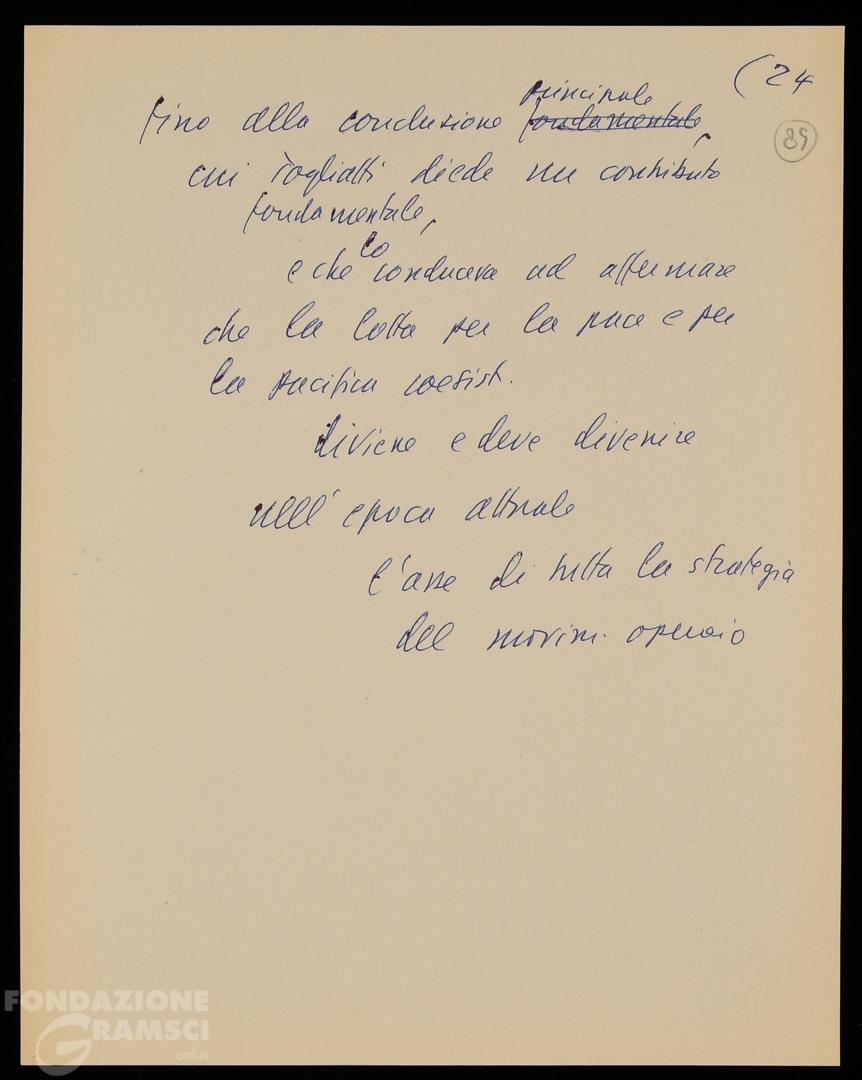 (24
89
principale
fino alla conclusione fondamentale,
cui Togliatti diede un contributo
fondamentale,
lo
e che conduceva ad affermare
che la lotta per la pace e per
la pacifica coesist.
diviene e deve divenire
nell'epoca attuale
l'asse di tutta la strategia
del movim. operaio
FONDAZIONE
GRAMSCI
onlus